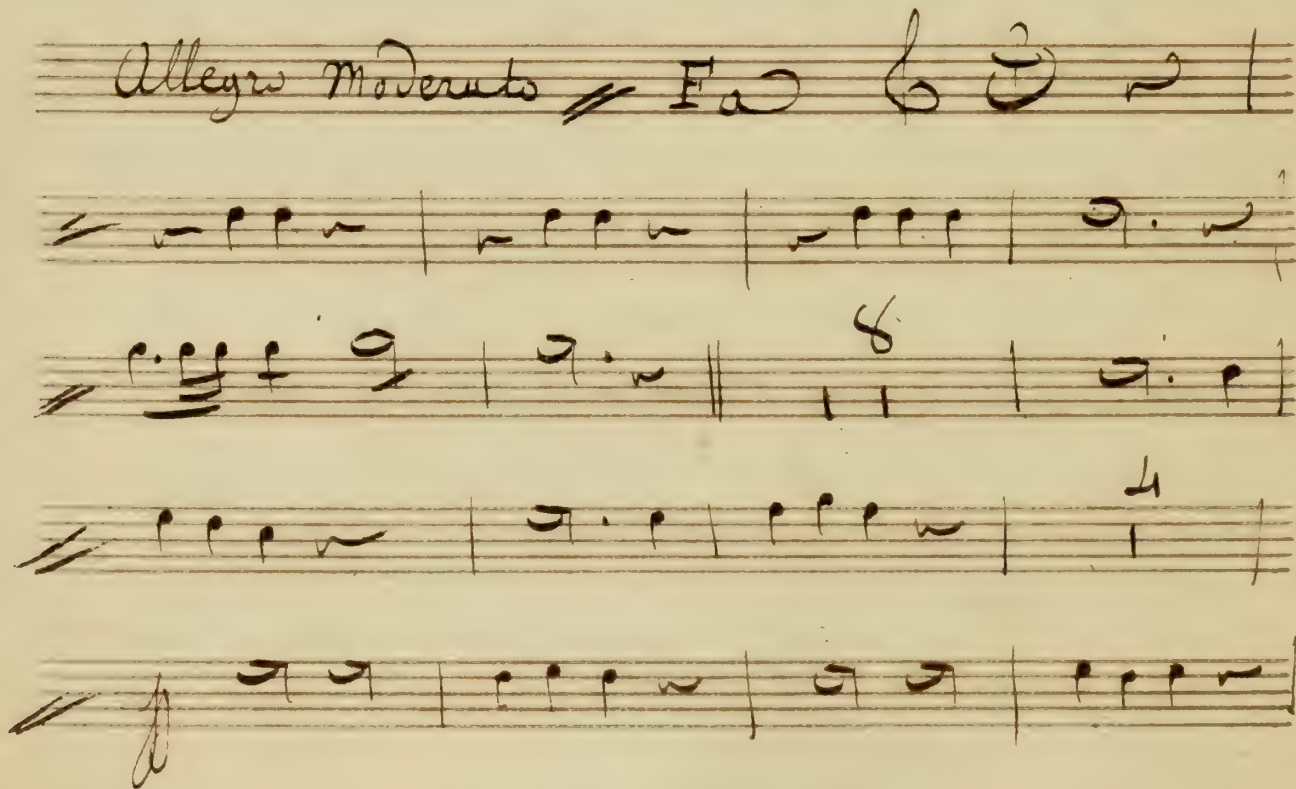 Allegro Moderato Fa
8
4
p